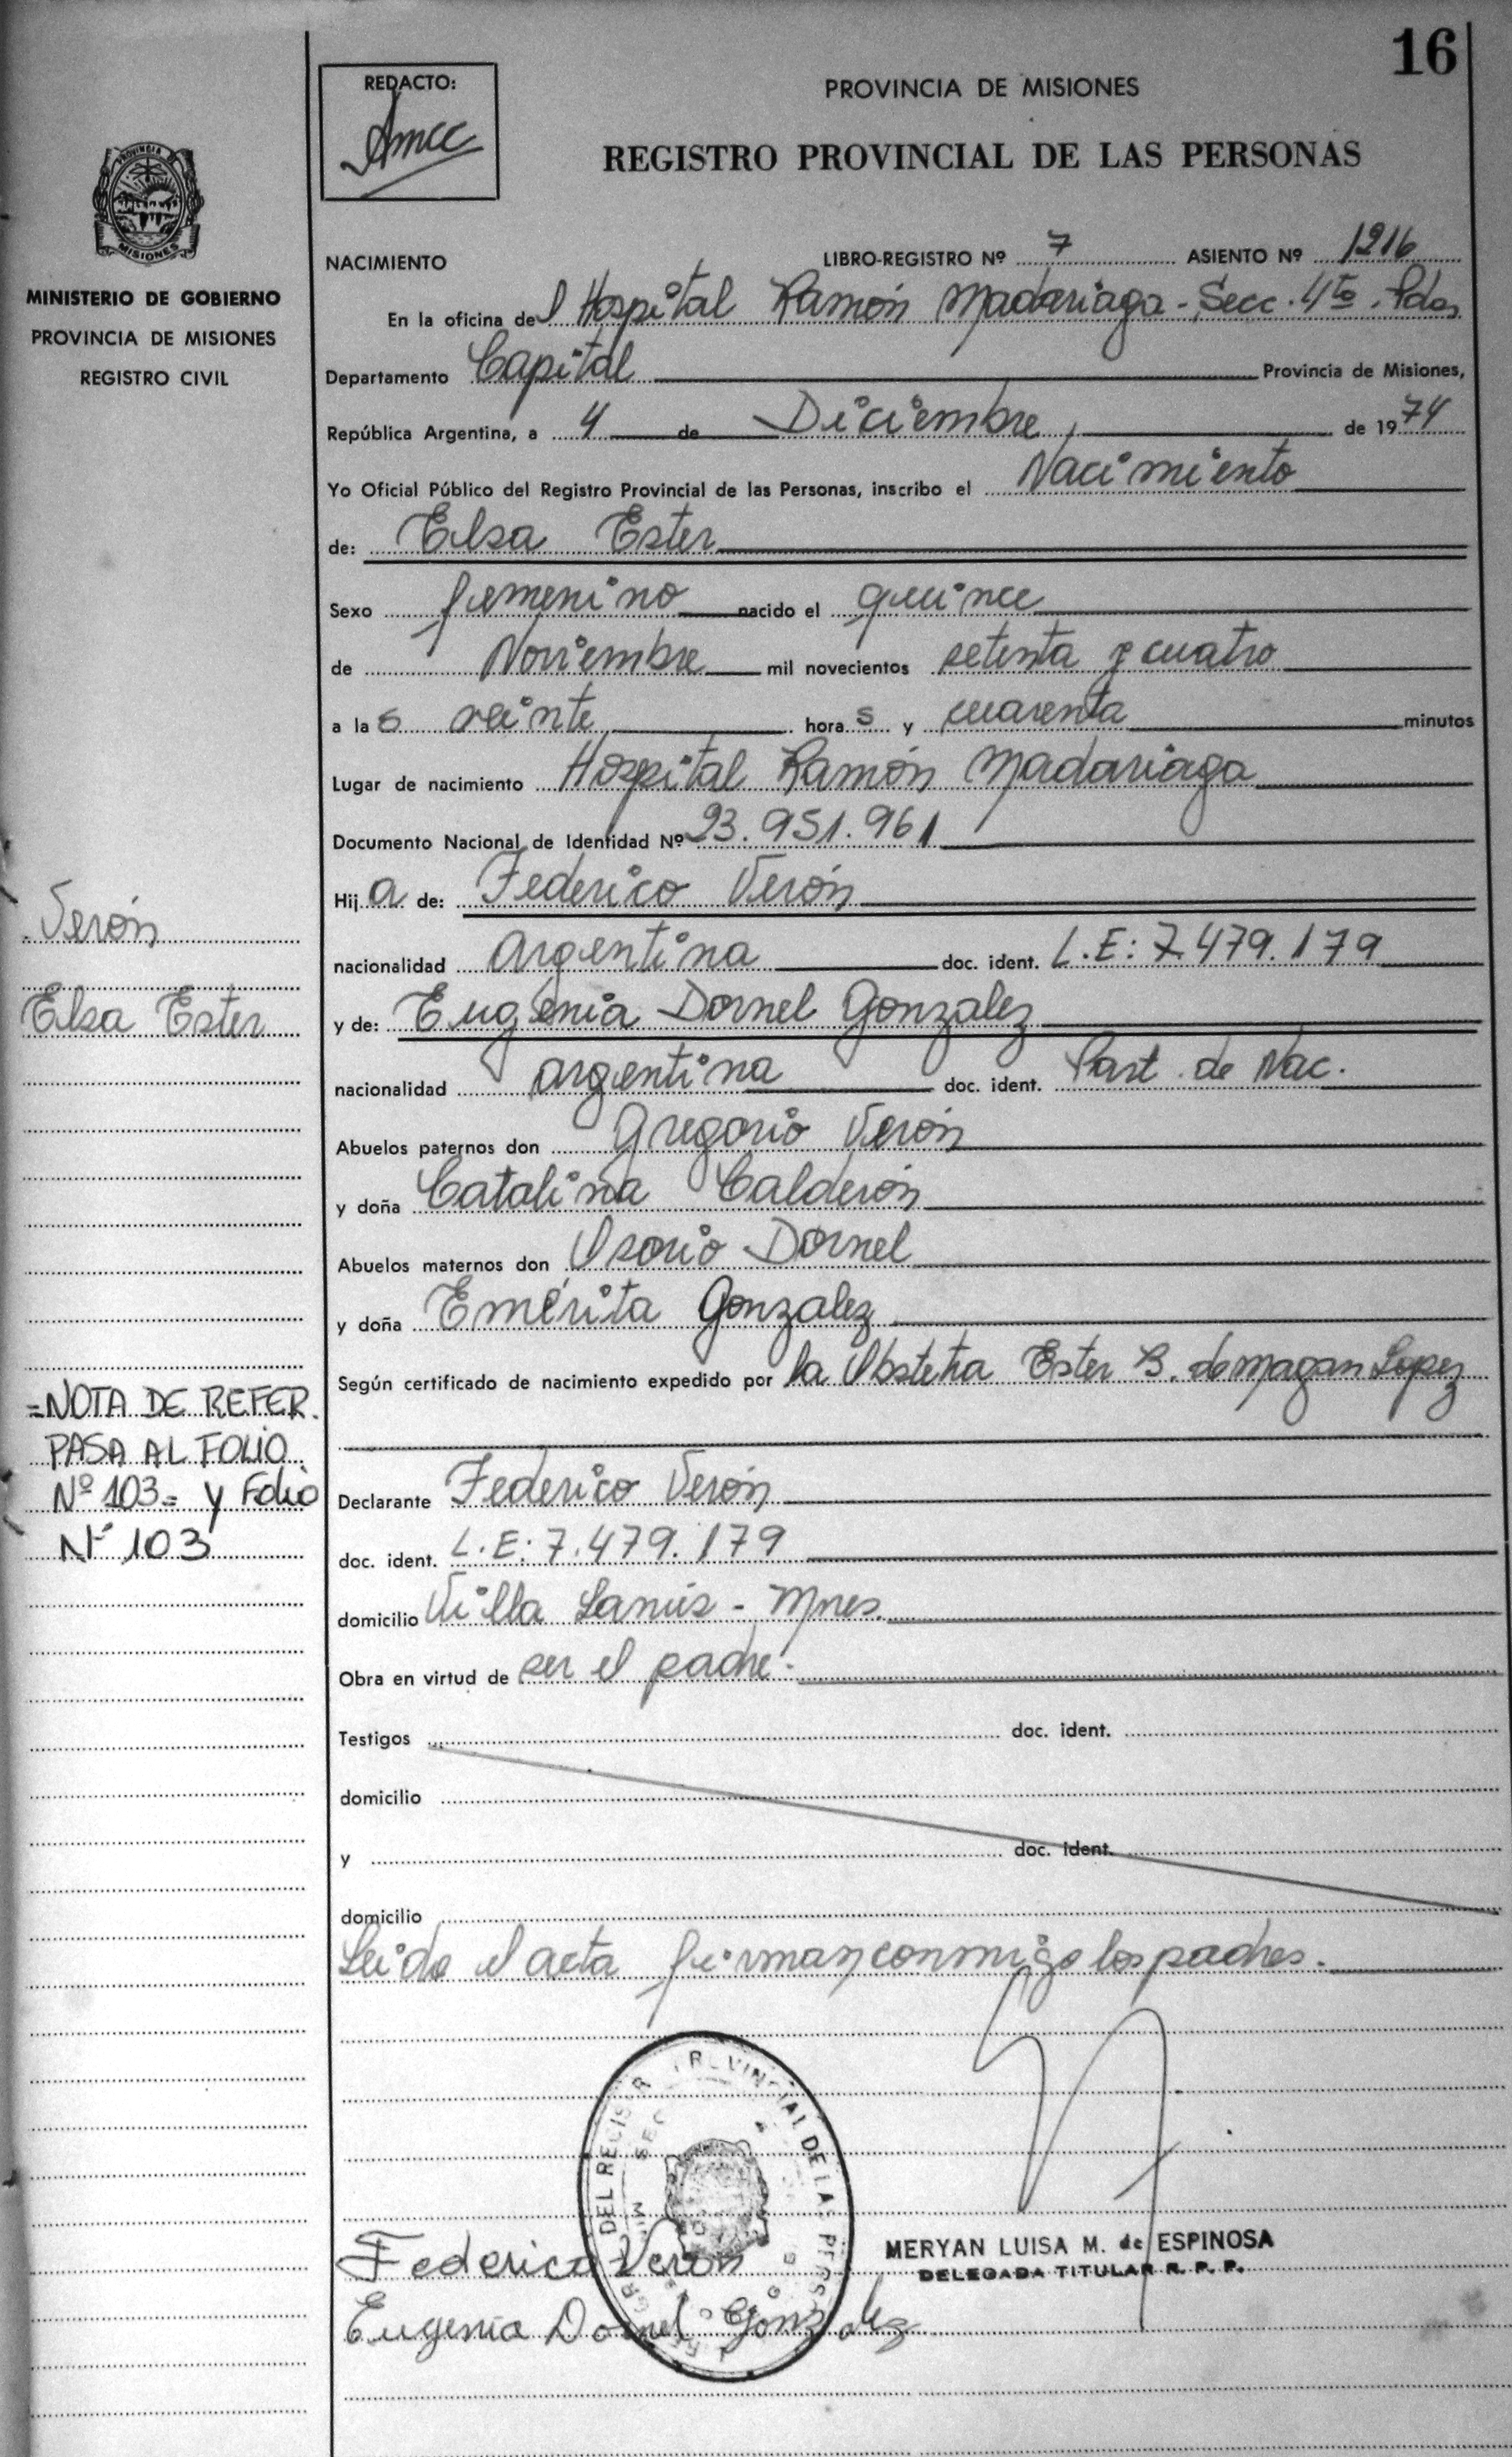 16
REDACTO:
PROVINCIA DE MISIONES
REGISTRO PROVINCIAL DE LAS PERSONAS
PROVINCIA DE
MISIONES
MINISTERIO DE GOBIERNO
PROVINCIA DE MISIONES
REGISTRO CIVIL
NACIMIENTO LIBRO-REGISTRO Nº 7 ASIENTO Nº 1216
En la oficina del Hospital Ramón Madariaga - Secc. 4ta. Pdas
Departamento Capital Provincia de Misiones,
República Argentina, a 4 de Diciembre de 1974
Yo Oficial Público del Registro Provincial de las Personas, inscribo el Nacimiento
de: Elsa Ester
Sexo femenino nacido el quince
de Noviembre mil novecientos setenta y cuatro
a las veinte horas y cuarenta minutos
Lugar de nacimiento Hospital Ramón Madariaga
Documento Nacional de Identidad Nº 23.951.961
Hija de: Federico Verón
nacionalidad argentina doc. ident. L.E: 7.479.179
y de: Eugenia Dornel Gonzalez
nacionalidad argentina doc. ident. Part. de Nac.
Abuelos paternos don Gregorio Verón
y doña Catalina Calderón
Abuelos maternos don Osorio Dornel
y doña Emérita Gonzalez
Según certificado de nacimiento expedido por la Obstetra Ester B. de Magan Lopez
Declarante Federico Verón
doc. ident. L.E: 7.479.179
domicilio Villa Lanús - Mnes.
Obra en virtud de ser el padre.
Testigos doc. ident.
domicilio
y doc. ident.
domicilio
Leida el acta firman conmigo los padres.
Verón
Elsa Ester
=NOTA DE REFER.
PASA AL FOLIO
Nº 103= y Folio
Nº 103
DEL REGISTR PROVINCIAL DE LAS PERS
MERYAN LUISA M. de ESPINOSA
DELEGADA TITULAR R. P. P.
Federico Veron
Eugenia Dornel Gonzalez